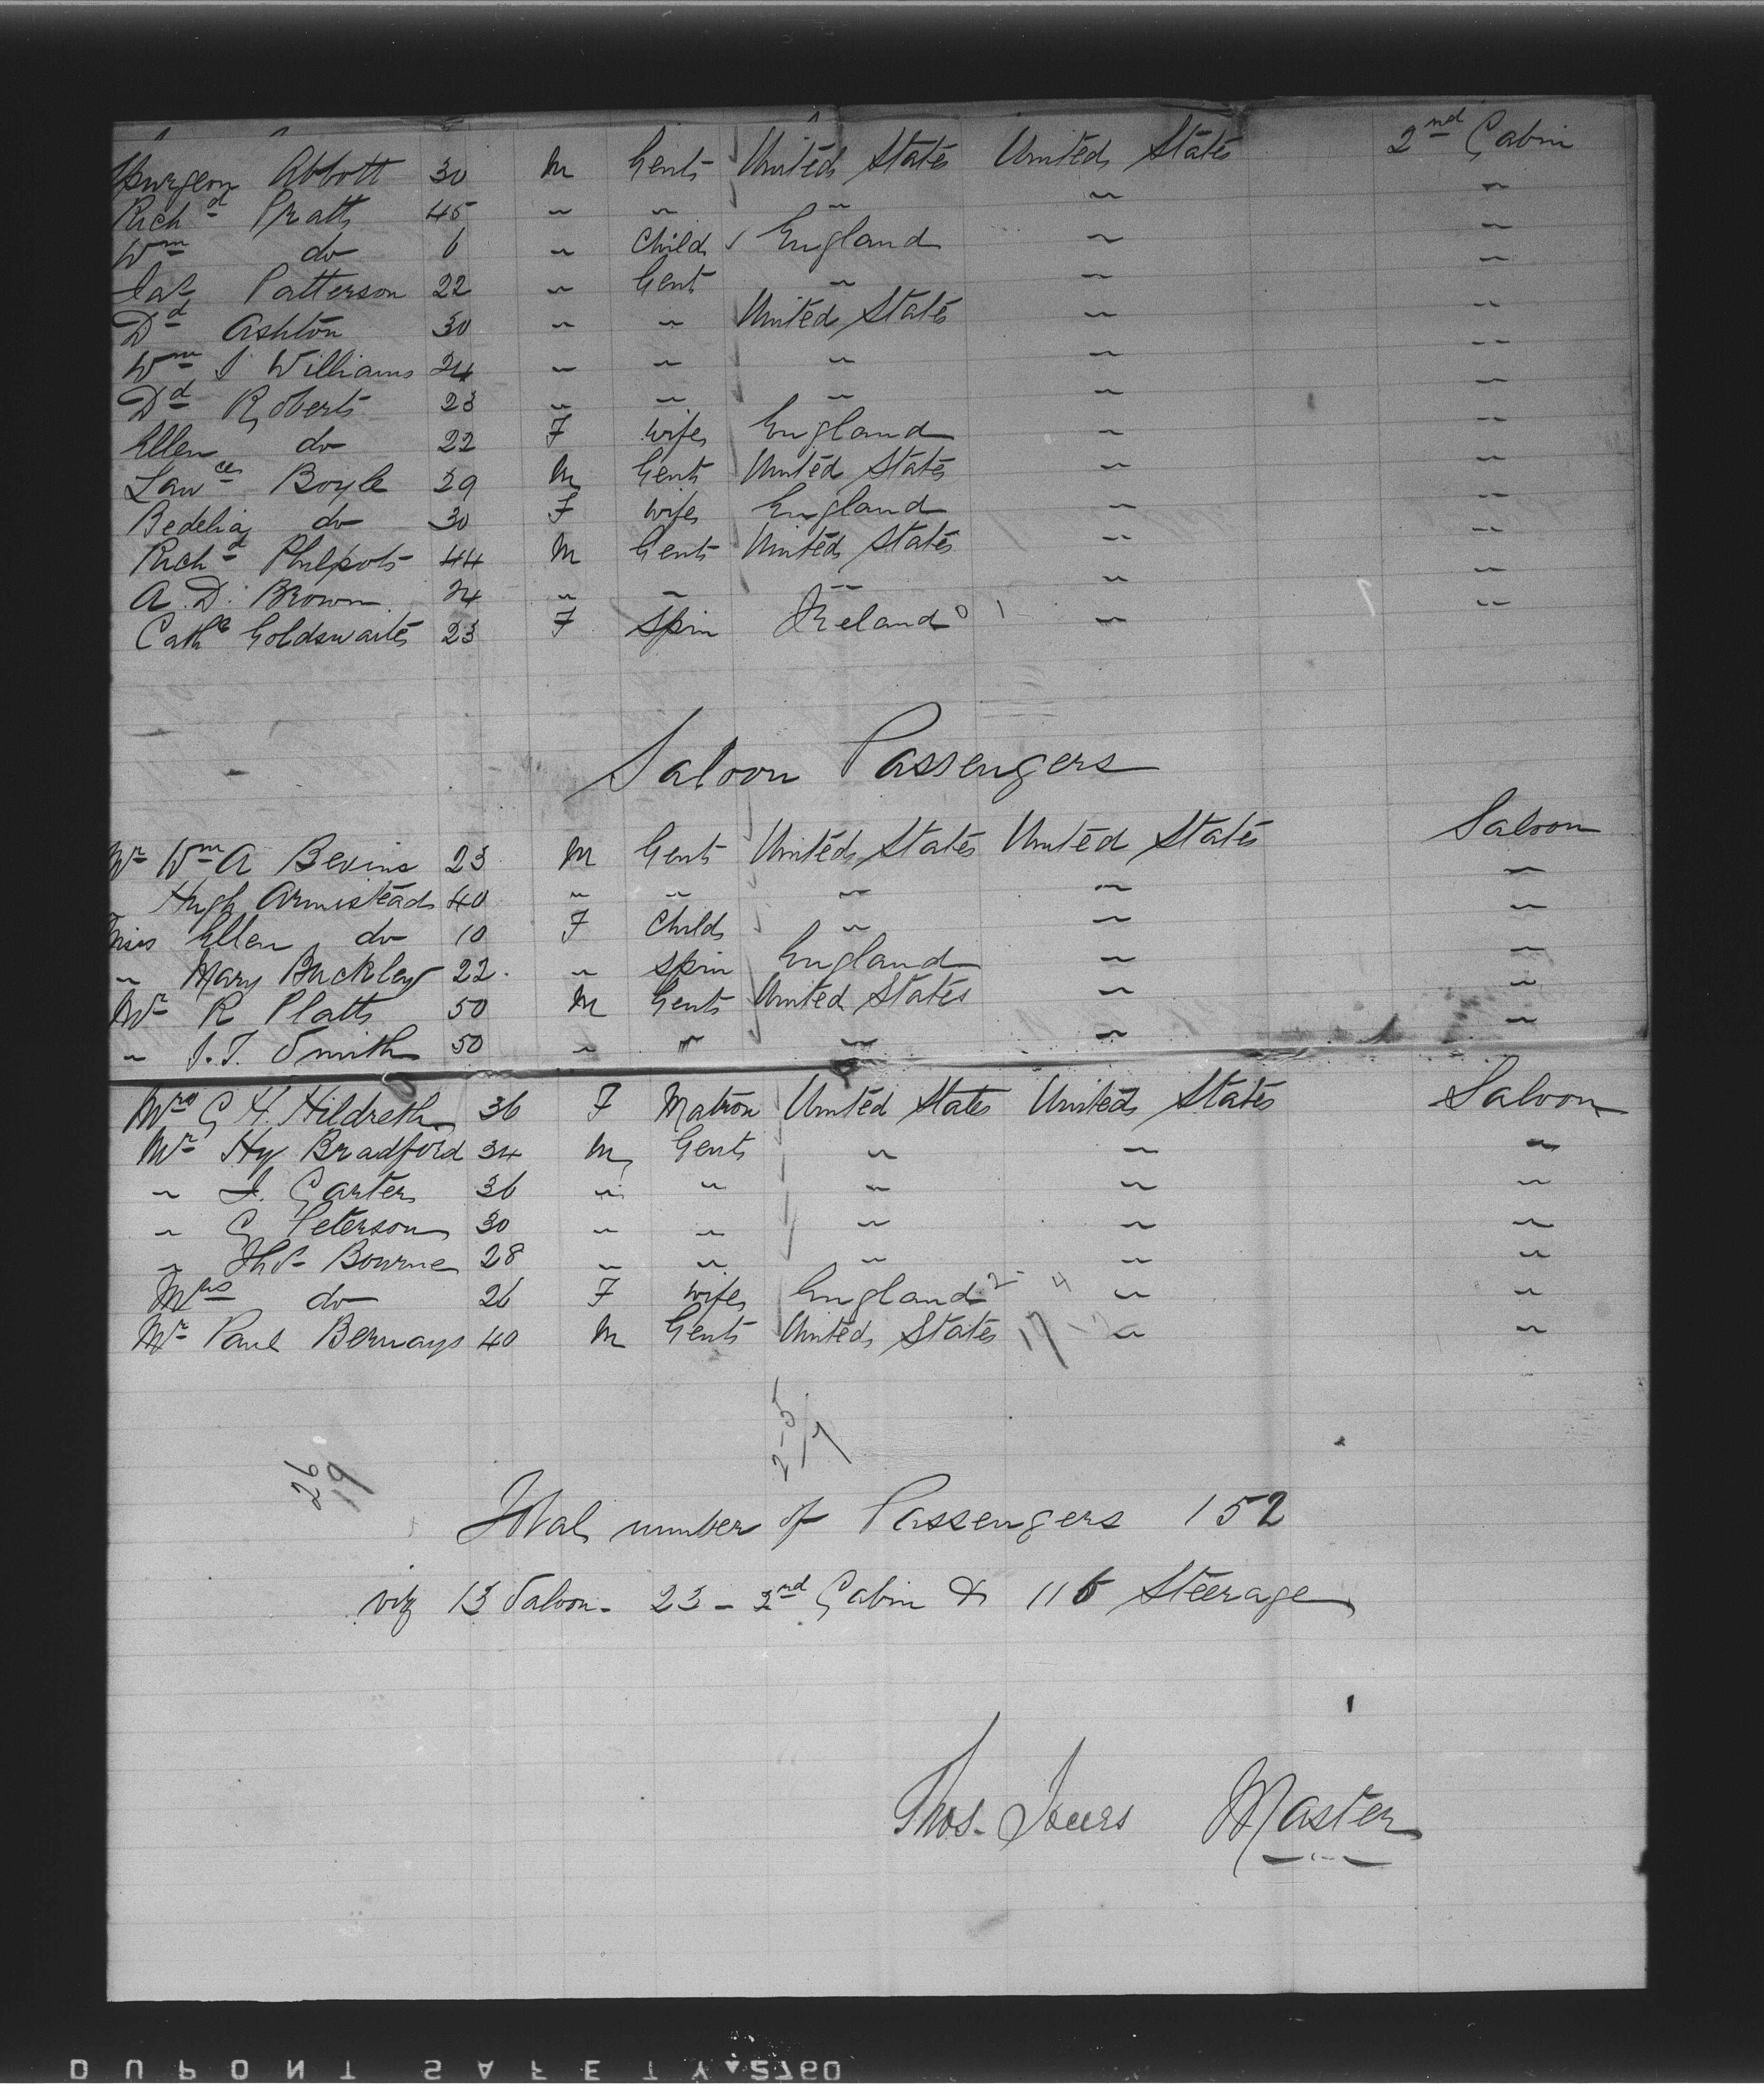 Spurgeon Abbott 30 M Gent United States United States 2nd Cabin
Richd Pratt 45 " " " " "
Wm do 6 " Child England " "
Jas Patterson 22 " Gent " " "
Dd Ashton 30 " " United States " "
Wm J Williams 24 " " " " "
Dd Roberts 23 " " " " "
Ellen do 22 F wife England " "
Lawce Boyle 29 M Gent United States " "
Bedelia do 30 F wife England " "
Richd Philpots 44 M Gent United States " "
A. D. Brown 24 " " " " "
Cathe Goldswaite 23 F Spin Ireland 0 1 " "
Saloon Passengers
Mr Wm A Bevins 23 M Gent United States United States Saloon
" Hugh Armistead 40 " " " " "
Miss Ellen do 10 F Child " " "
" Mary Buckley 22 " Spin England " "
Mr R Platt 50 M Gent United States " "
" J. T. Smith 50 " " " " "
Mrs C H. Hildreth 36 F Matron United States United States Saloon
Mr Hy Bradford 34 M Gent " " "
" J. Carter 36 " " " " "
" C Peterson 30 " " " " "
" Thos Bourne 28 " " " " "
Mrs do 26 F wife England 2 4 " "
Mr Paul Bernays 40 M Gent United States 17 " "
26
19
Total number of Passengers 152
viz 13 Saloon - 23 - 2nd Cabin & 116 Steerage
Thos. Master
DUPONT SAFETY 2760